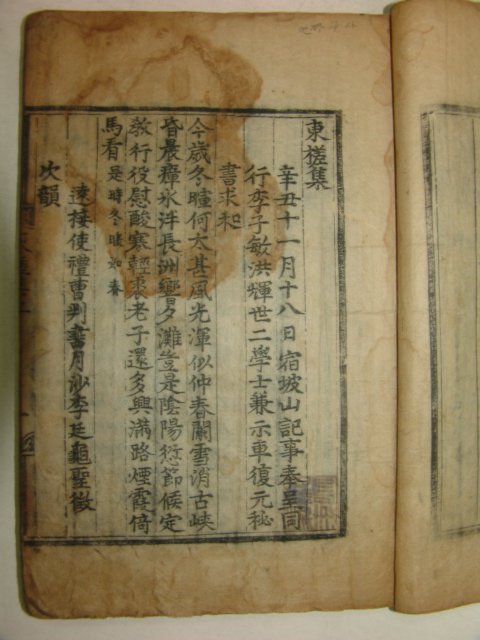 東槎集
辛丑十一月十八日宿坡山記事奉呈同
行李子敏洪輝世二學士兼示車復元秘
書求和
今歲冬暄何太甚風光渾似仲春闌雪消古峽
昏最瘴氷泮長洲響夕灘豈是陰陽愆節候定
敎行役慰酸寒輕裘老子還多興滿路煙霞倚
馬看是時冬暄如春
次韻
遠接使禮曹判書月沙李廷龜聖徵